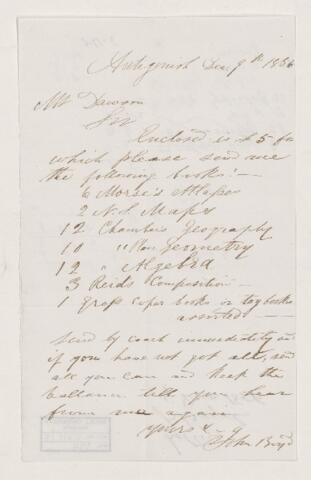 Antigonish Dec 9th 1856
Mr Dawson
Sir
Enclosed is £5 for
which please send me
the following books:—
6 Morse's Atlases
2 N.S. Maps
12 Chambers Geography
10 " Plan Geometry
12 " Algebra
3 Reids Composition —
1 gross copy books or toy books
assorted —
Send by coach immediately and
if you have not got all, send
all you can and keep the
ballance till you hear
from me again
yours &
John Boyd